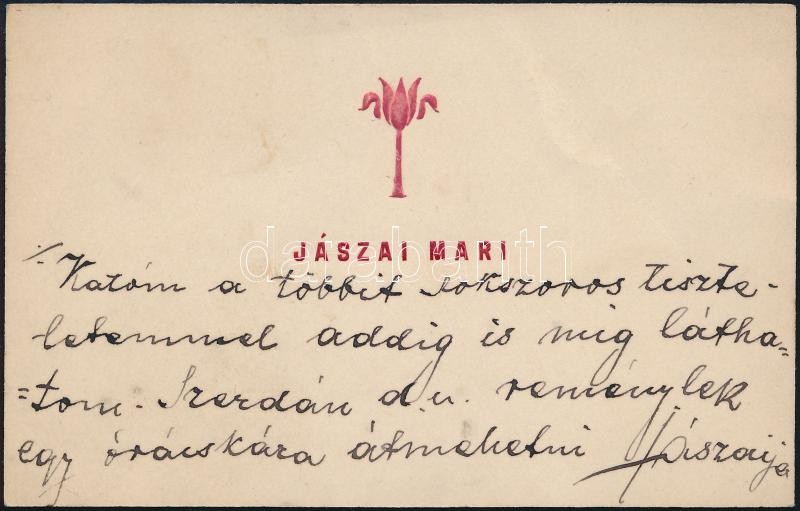 JÁSZAI MARI
/. Katóm a többit sokszoros tiszte-
letemmel addig is mig látha=
=tom. Szerdán d.u. reménylek
egy órácskára átmehetni Jászaija